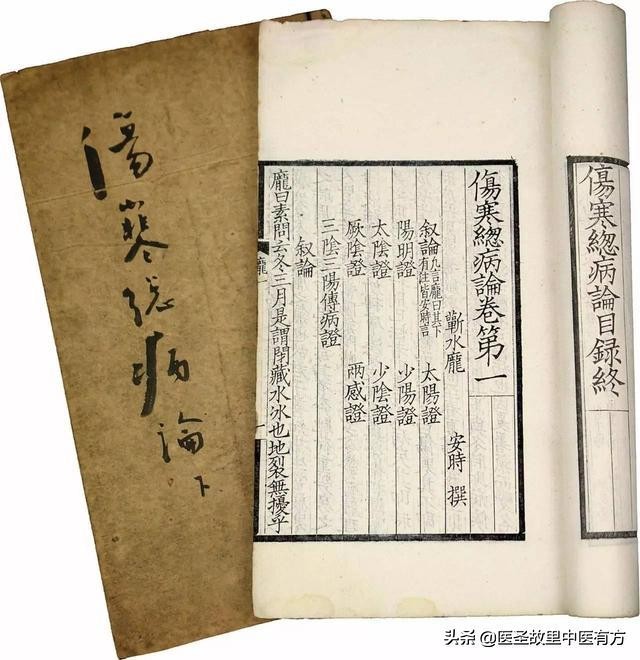 傷寒緫病論目録終
傷寒緫病論卷第一
蘄水龐 安時 撰
叙論 凡言龐曰其下有註皆安時言 太陽證
陽明證 少陽證
太陰證 少陰證
厥陰證 兩感證
三陰三陽傳病證
叙論
龐曰素問云冬三月是謂閉藏水冰也地裂無擾乎
傷寒总病論 下
头条 @医圣故里中医有方